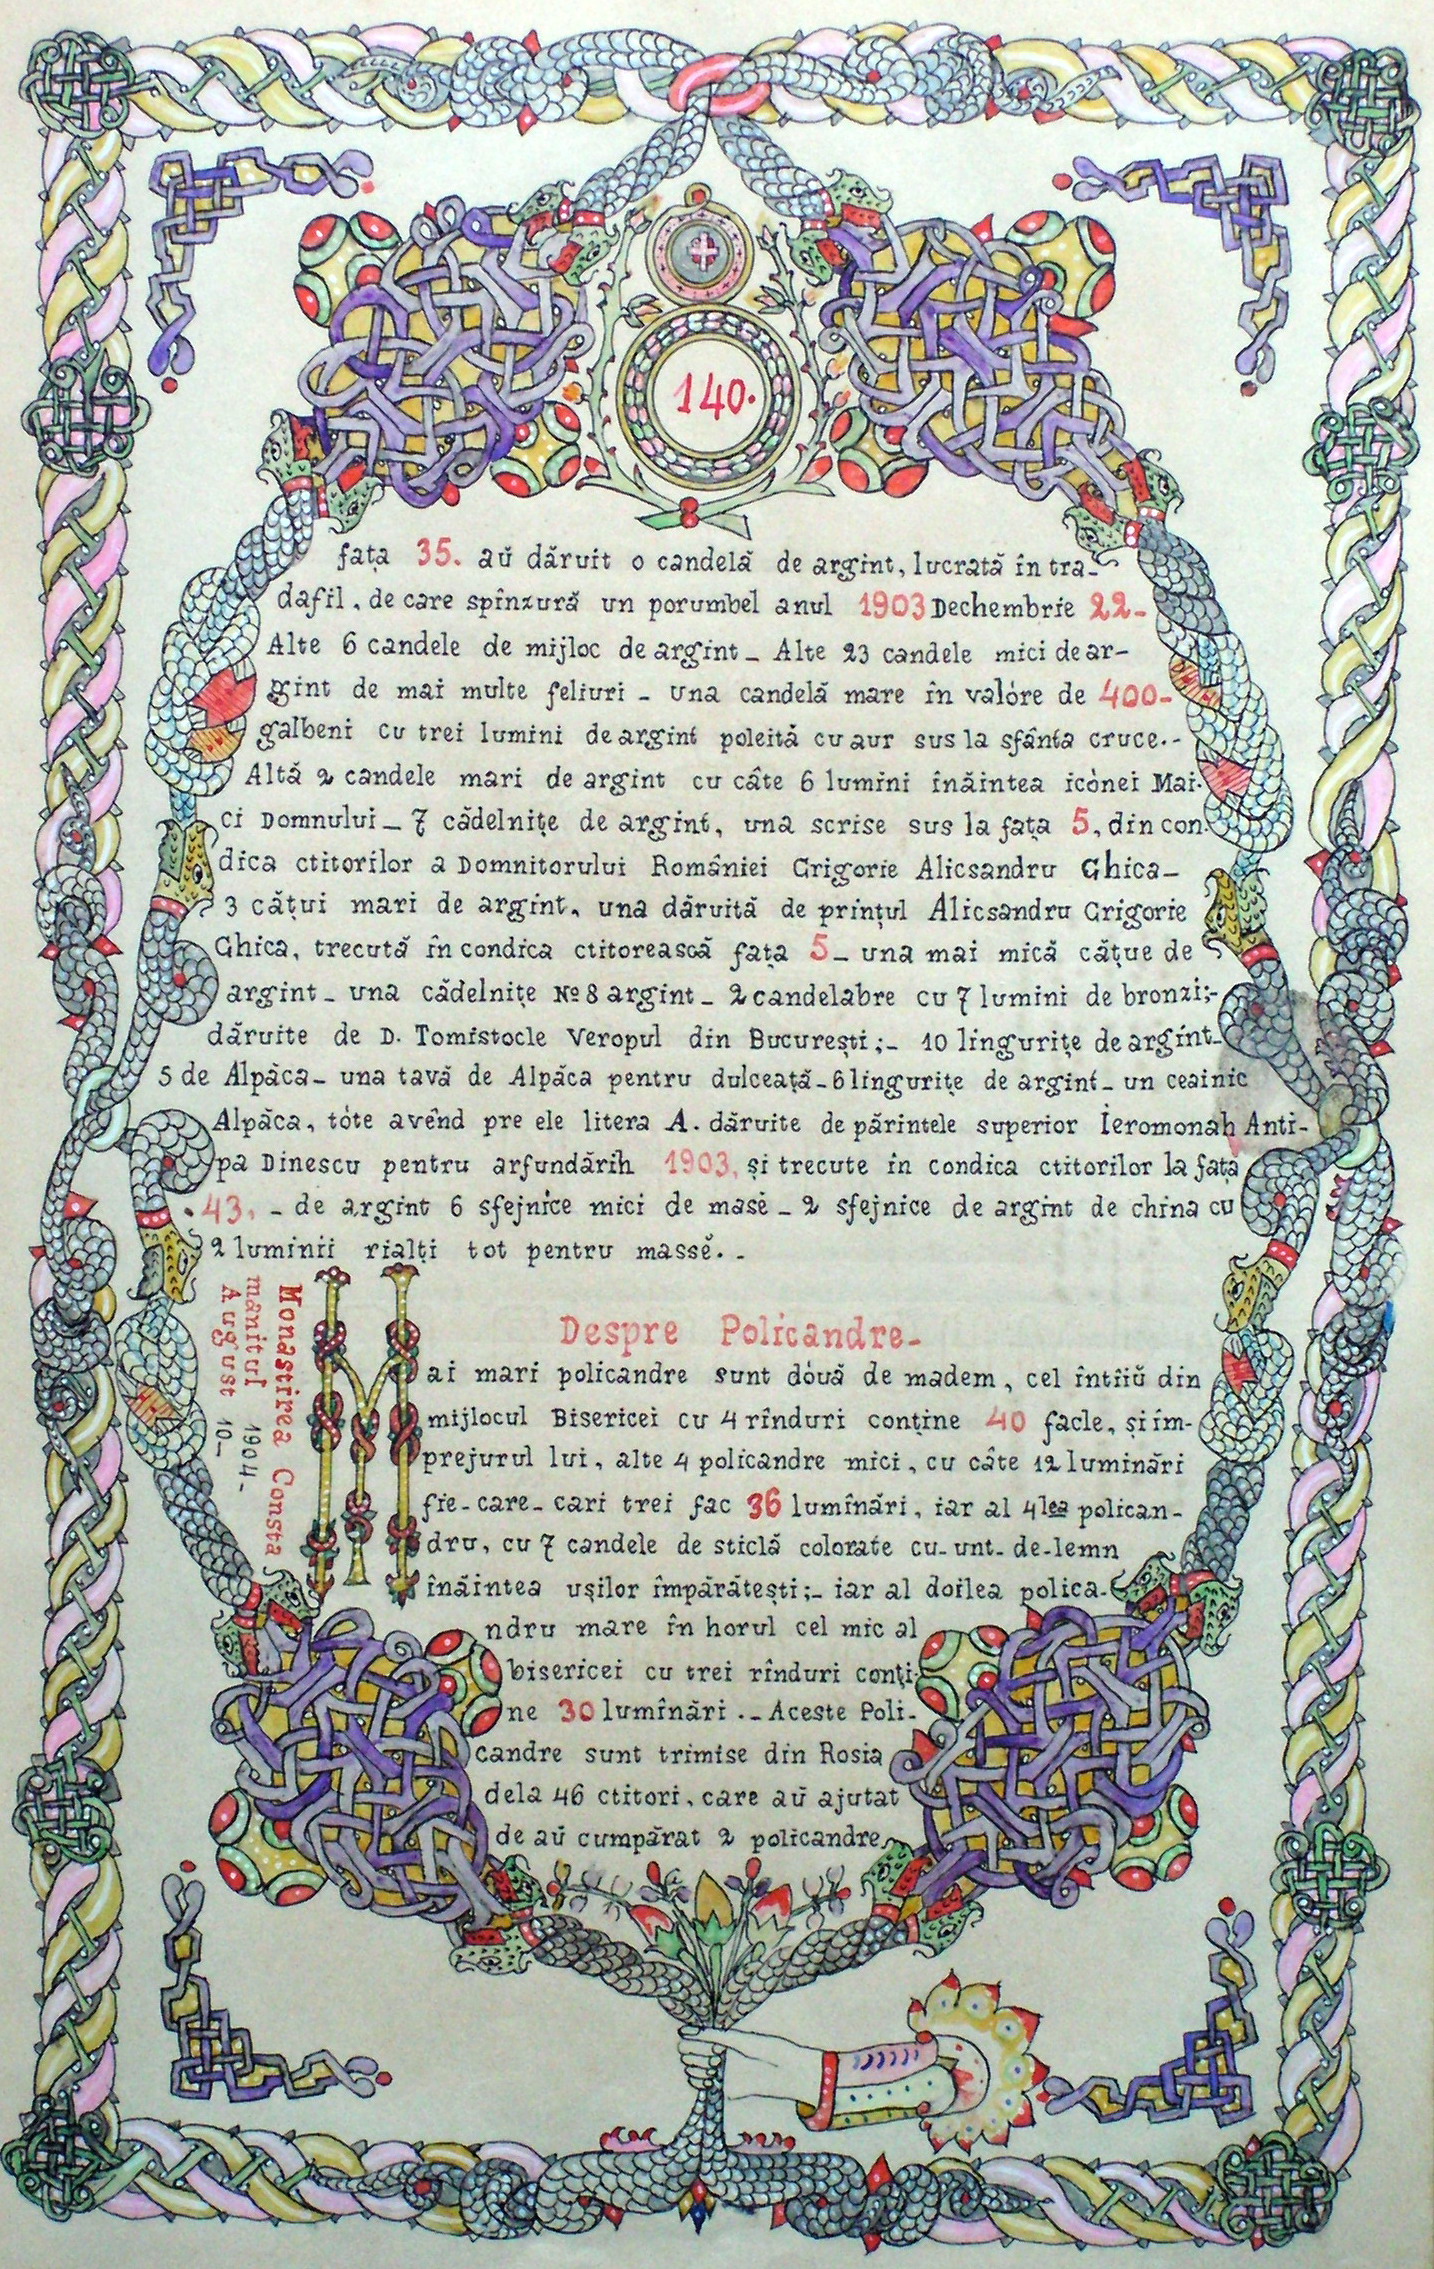 140.
fața 35. aŭ dăruit o candelă de argint, lucrată în tra-
dafil, de care spînzură un porumbel anul 1903 Dechembrie 22-
Alte 6 candele de mijloc de argint - Alte 23 candele mici de ar-
gint de mai multe feliuri - una candelă mare în valóre de 400-
galbeni cu trei lumini de argint poleită cu aur sus la sfânta cruce.-
Altă 2 candele mari de argint cu câte 6 lumini înăintea icónei Mai-
ci Domnului - 7 cădelnițe de argint, una scrise sus la fața 5, din con-
dica ctitorilor a Domnitorului României Grigorie Alicsandru Ghica-
3 cățui mari de argint, una dăruită de prințul Alicsandru Grigorie
Ghica, trecută în condica ctitorească fața 5- una mai mică cățue de
argint- una cădelnițe № 8 argint- 2 candelabre cu 7 lumini de bronzi;-
dăruite de D. Tomistocle Veropul din București;- 10 lingurițe de argint-
5 de Alpăca- una tavă de Alpăca pentru dulceață- 6 lingurițe de argint- un ceainic
Alpăca, tóte avênd pre ele litera A. dăruite de părintele superior Ieromonah Anti-
pa Dinescu pentru arfundărih 1903, și trecute în condica ctitorilor la fața
.43, - de argint 6 sfejnice mici de masĕ - 2 sfejnice de argint de china cu
2 luminii rialți tot pentru massĕ. -
Despre Policandre-
Mai mari policandre sunt dóuă de madem, cel întîiŭ din
mijlocul Bisericei cu 4 rînduri conține 40 facle, și îm-
prejurul lui, alte 4 policandre mici, cu câte 12 luminări
fie-care- cari trei fac 36 lumînări, iar al 4lea polican-
dru, cu 7 candele de sticlă colorate cu- unt- de-lemn
înăintea ușilor împărătești;- iar al doilea polica-
ndru mare în horul cel mic al
bisericei cu trei rînduri conți-
ne 30 lumînări .- Aceste Poli-
candre sunt trimise din Rosia
dela 46 ctitori, care aŭ ajutat
de aŭ cumpărat 2 policandre
Monastirea Consta
manitul 1904-
August 10-